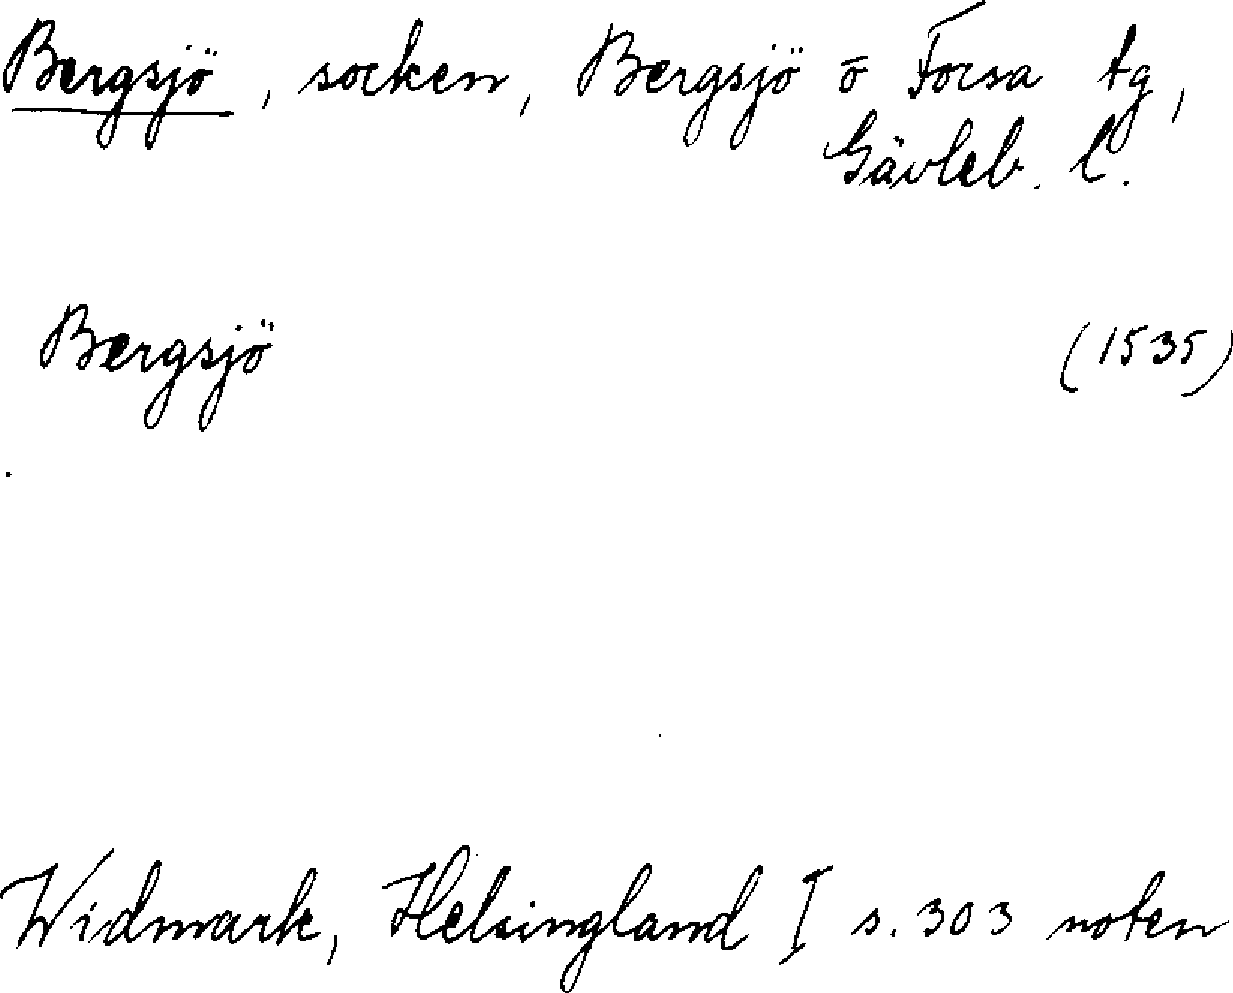 Bergsjö, socken, Bergsjö o Forsa tg,
Gävleb. l.
Bergsjö (1535)
Widmark, Helsingland I s. 303 noten